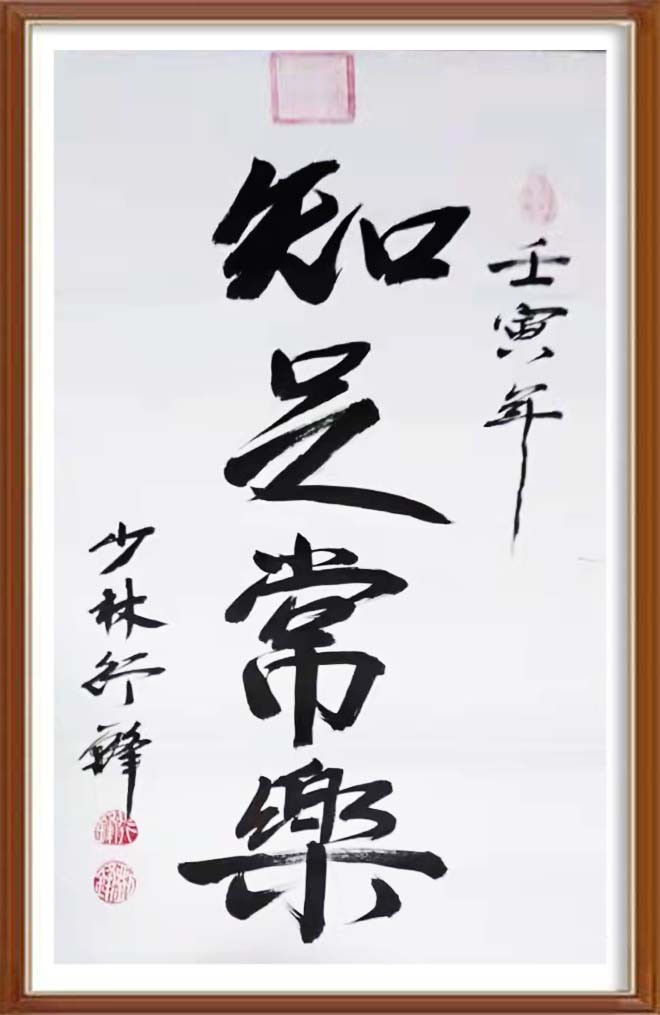 壬寅年
知足常樂
少林行鋒